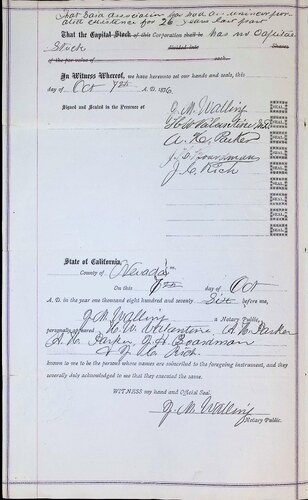 That said association has had a existence for 26 years last past
That the Capital Stock of this Corporation shall be has no Capital
Stock divided into Shares
of the par value of each.
In Witness Whereof, we have hereunto set our hands and seals, this
day of Oct 7th A.D. 1876.
Signed and Sealed in the Presence of
J. M. Walling SEAL
H. W. Valentine SEAL
A. H. Parker SEAL
J. G. Boardman SEAL
J. C. Rich SEAL
SEAL
SEAL
SEAL
SEAL
State of California,
County of Nevada ss.
On this 7th day of Oct
A. D. in the year one thousand eight hundred and seventy Six before me,
J. M. Walling a Notary Public,
personally appeared H. W. Valentine, A. H. Parker
A. H. Parker, J. G. Boardman
& J. C. Rich
known to me to be the persons whose names are subscribed to the foregoing instrument, and they
severally duly acknowledged to me that they executed the same.
WITNESS my hand and Official Seal.
J. M. Walling
Notary Public.